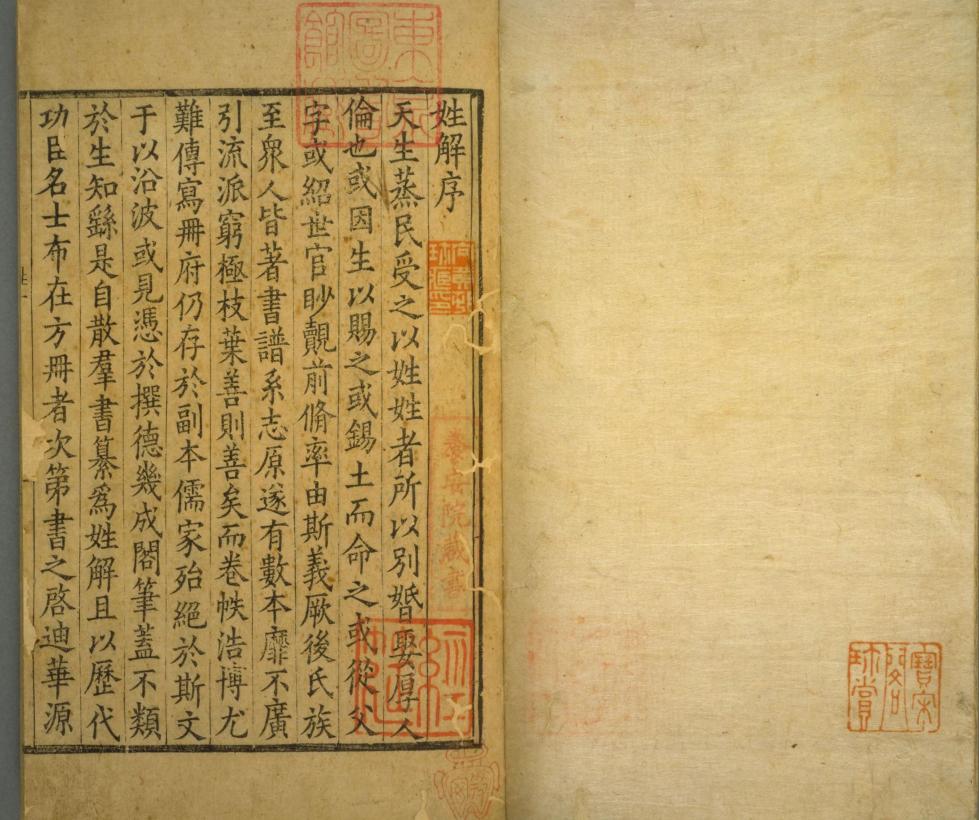 姓解序
天生蒸民受之以姓姓者所以別婚娶厚人
倫也或因生以賜之或錫土而命之或從父
字或紹世官眇覿前脩率由斯義厥後氏族
至衆人皆著書譜系志原遂有數本靡不廣
引流派窮極枝葉善則善矣而卷帙浩博尤
難傳寫冊府仍存於副本儒家殆絕於斯文
于以沿波或見憑於撰德幾成閣筆蓋不類
於生知繇是自散羣書纂爲姓解且以歷代
功臣名士布在方冊者次第書之啓迪華源
養安院藏書
寶宋閣珎賞